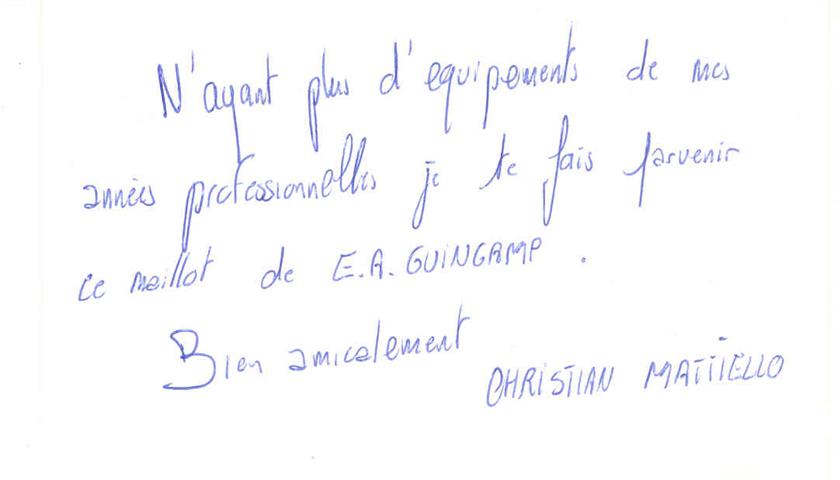 N'ayant plus d'equipements de mes
années professionnelles je te fais parvenir
ce maillot de E.A. GUINGAMP.
Bien amicalement
CHRISTIAN MATTIELLO